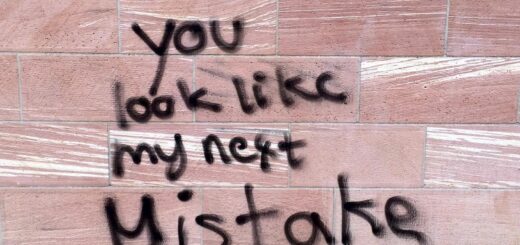 you
look like
my next
Mistake